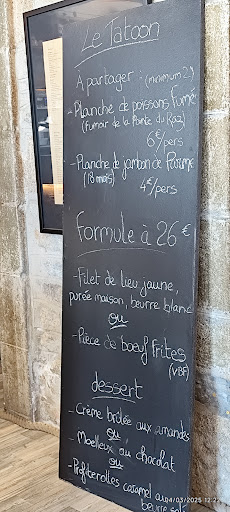 Le Tatoon
A partager : (minimum 2)
- Planche de poissons fumé
(fumoir de la Pointe du Raz)
6€/pers
- Planche de jambon de Parme
(18 mois)
4€/pers
Formule à 26€
- Filet de lieu jaune,
purée maison, beurre blanc
ou
- Pièce de boeuf frites
(VBF)
dessert
- Crème brûlée aux amandes
ou
- Moelleux au chocolat
ou
- Profiterolles caramel au
beurre salé
04/03/2025 12:22